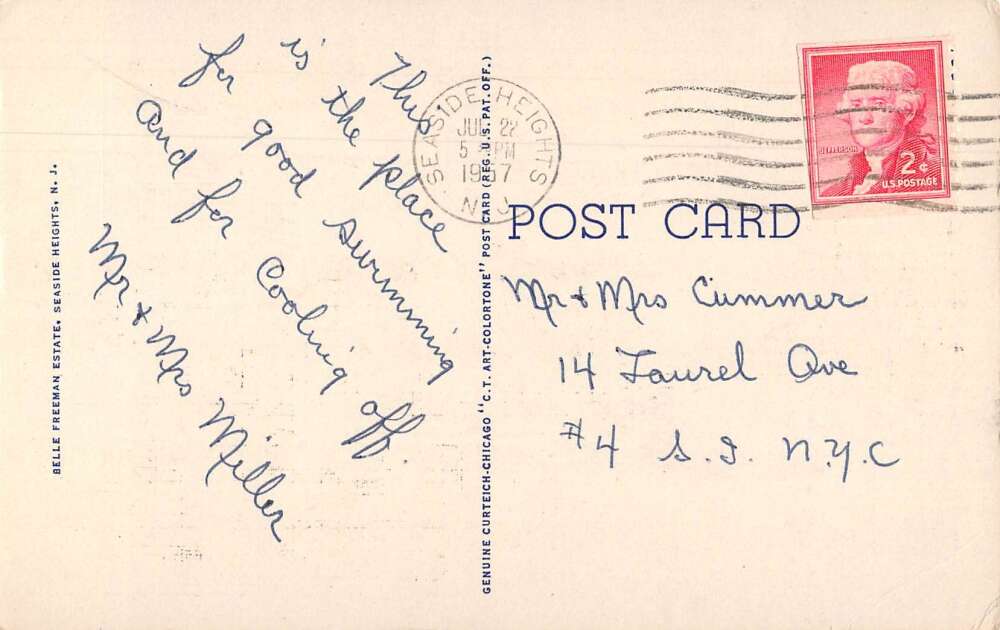 This
is the place
for good swimming
and for cooling off.
Mr. & Mrs Miller
BELLE FREEMAN ESTATE, SEASIDE HEIGHTS, N. J.
GENUINE CURTEICH-CHICAGO "C.T. ART-COLORTONE" POST CARD (REG. U.S. PAT. OFF.)
SEASIDE HEIGHTS
JUL 22
PM
1957
N.J.
JEFFERSON
2¢
U.S. POSTAGE
POST CARD
Mr & Mrs Cummer
14 Laurel Ave
#4 S.I. N.Y.C